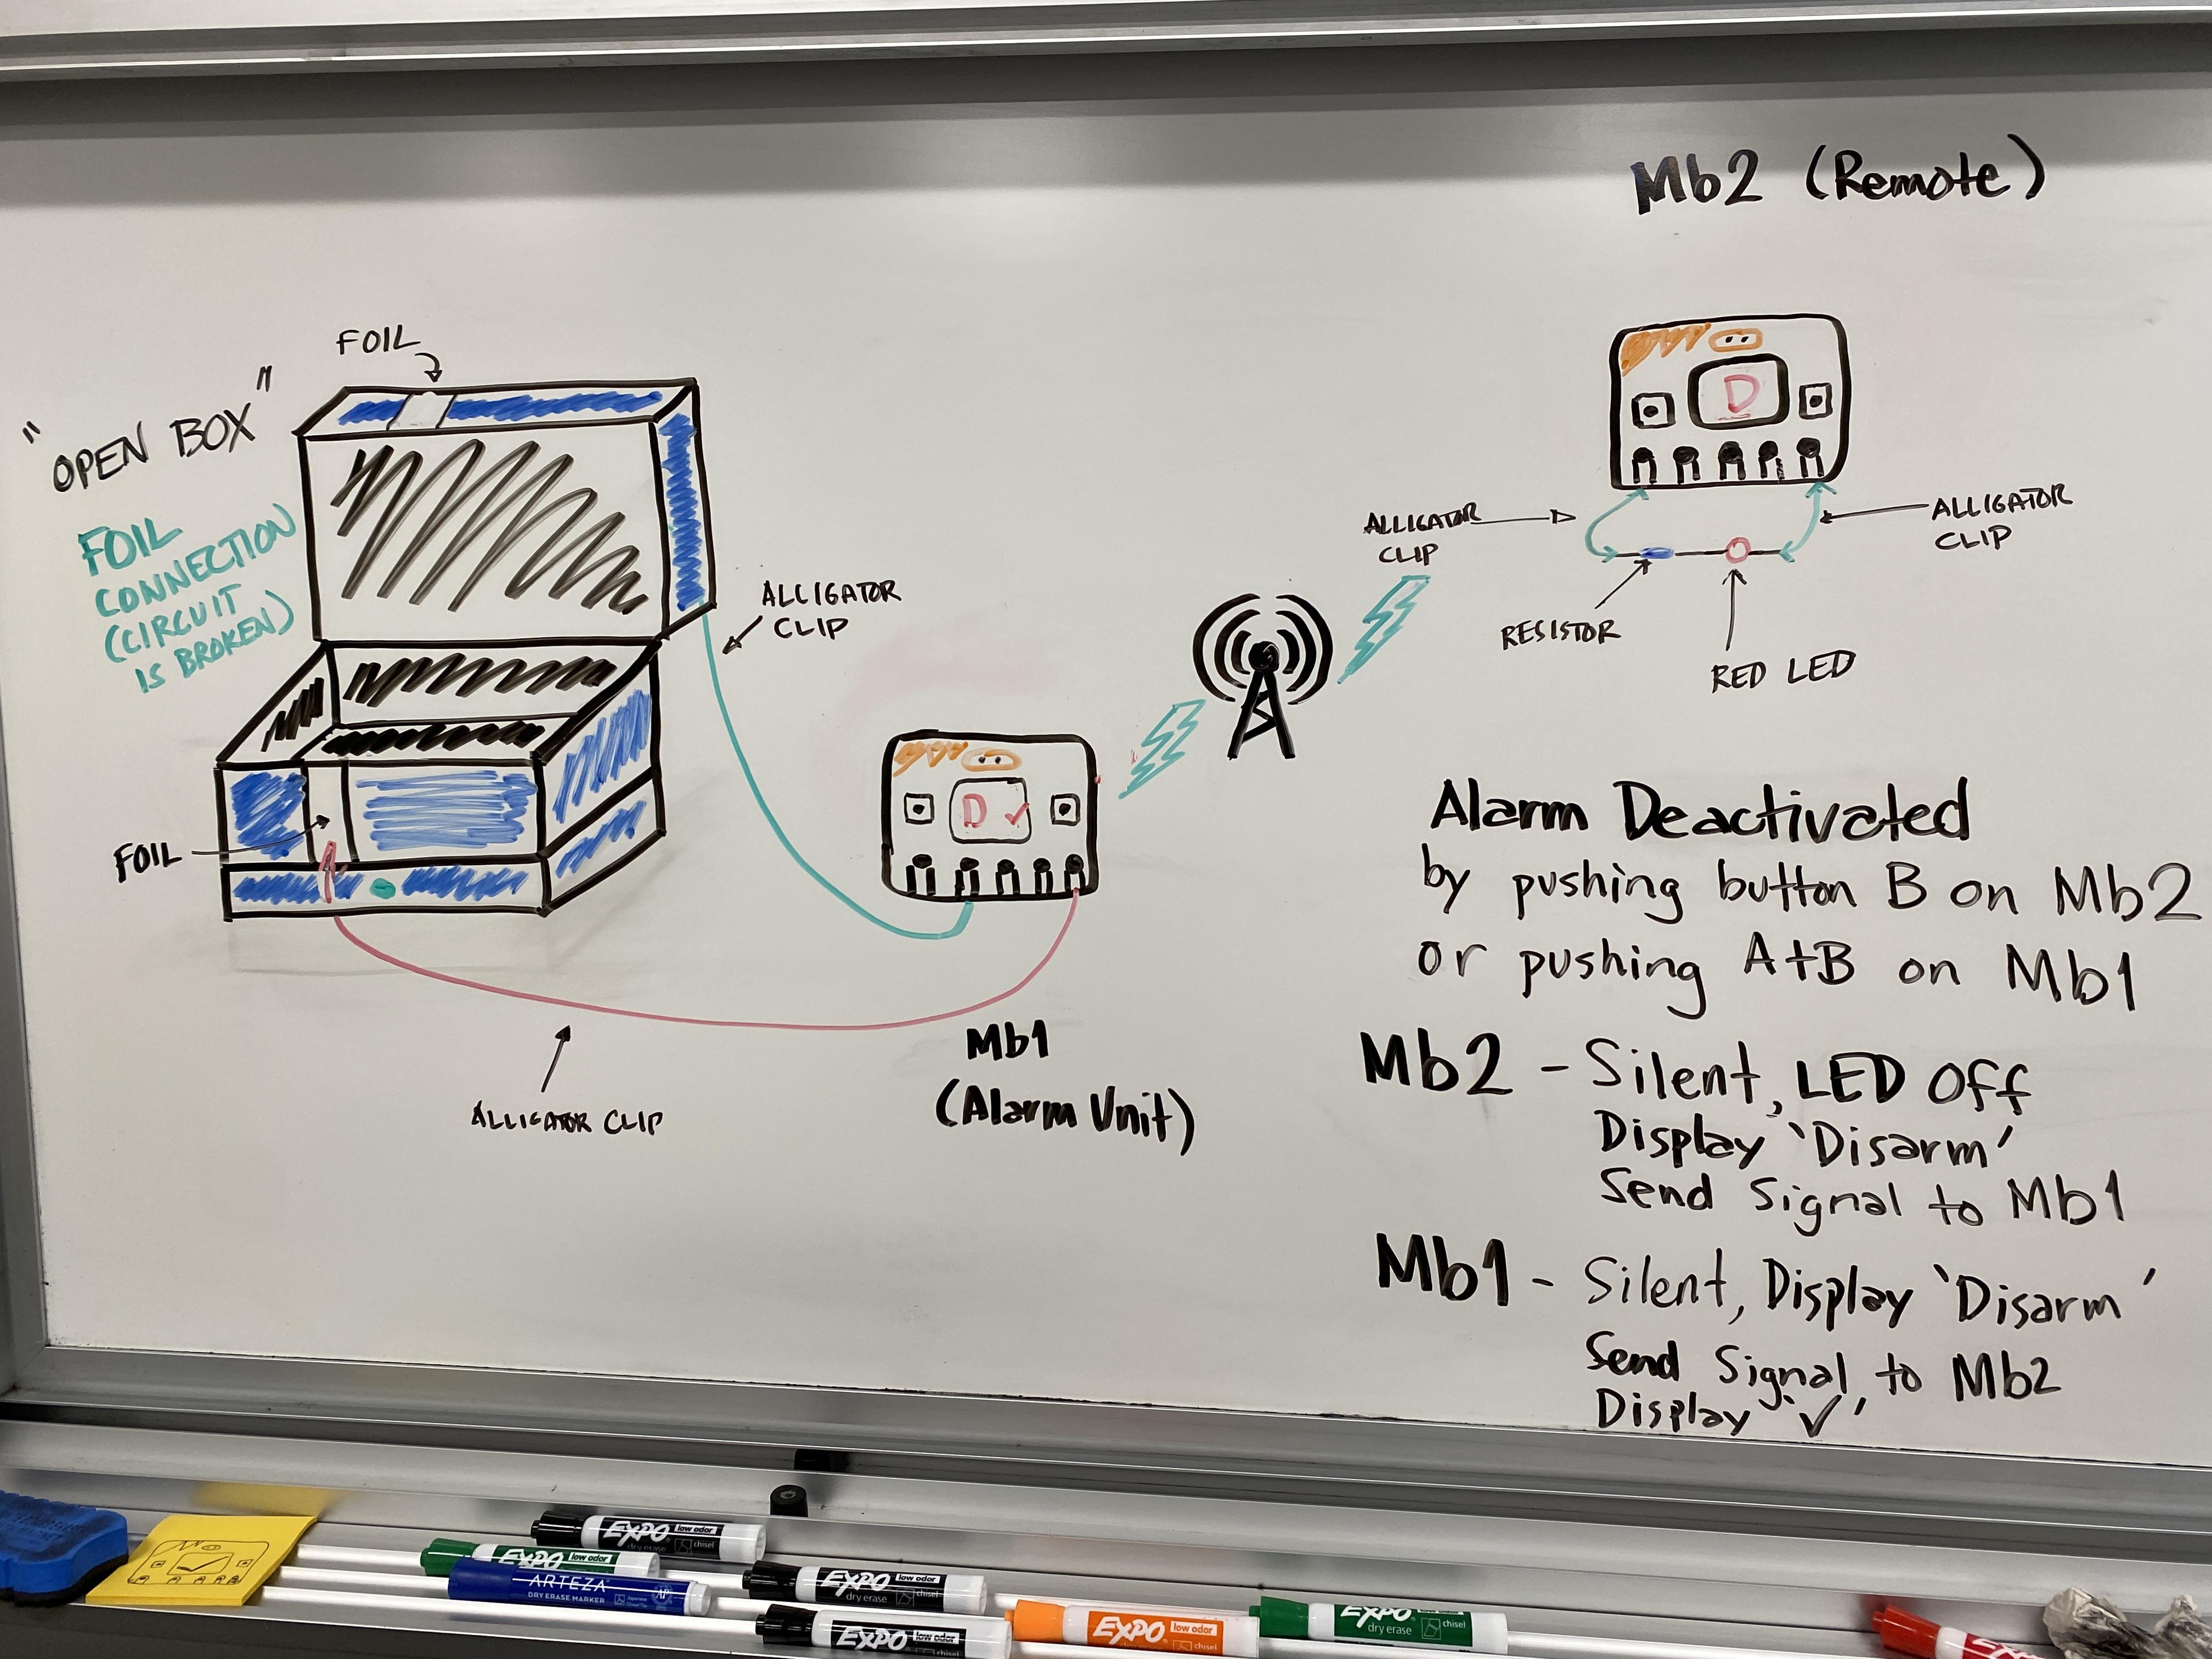 Mb2 (Remote)
FOIL
"OPEN BOX"
FOIL
CONNECTION
(CIRCUIT
IS BROKEN)
D
ALLIGATOR
CLIP
ALLIGATOR
CLIP
ALLIGATOR
CLIP
RESISTOR
RED LED
D ✓
FOIL
ALLIGATOR CLIP
Mb1
(Alarm Unit)
Alarm Deactivated
by pushing button B on Mb2
or pushing A+B on Mb1
Mb2 - Silent, LED Off
Display 'Disarm'
Send Signal to Mb1
Mb1 - Silent, Display 'Disarm'
Send Signal to Mb2
Display '✓'
EXPO low odor
dry erase chisel
EXPO low odor
ARTEZA
DRY ERASE MARKER
EXPO low odor
dry erase chisel
EXPO low odor
chisel
EXPO low odor
chisel
EXPO low odor
dry erase chisel